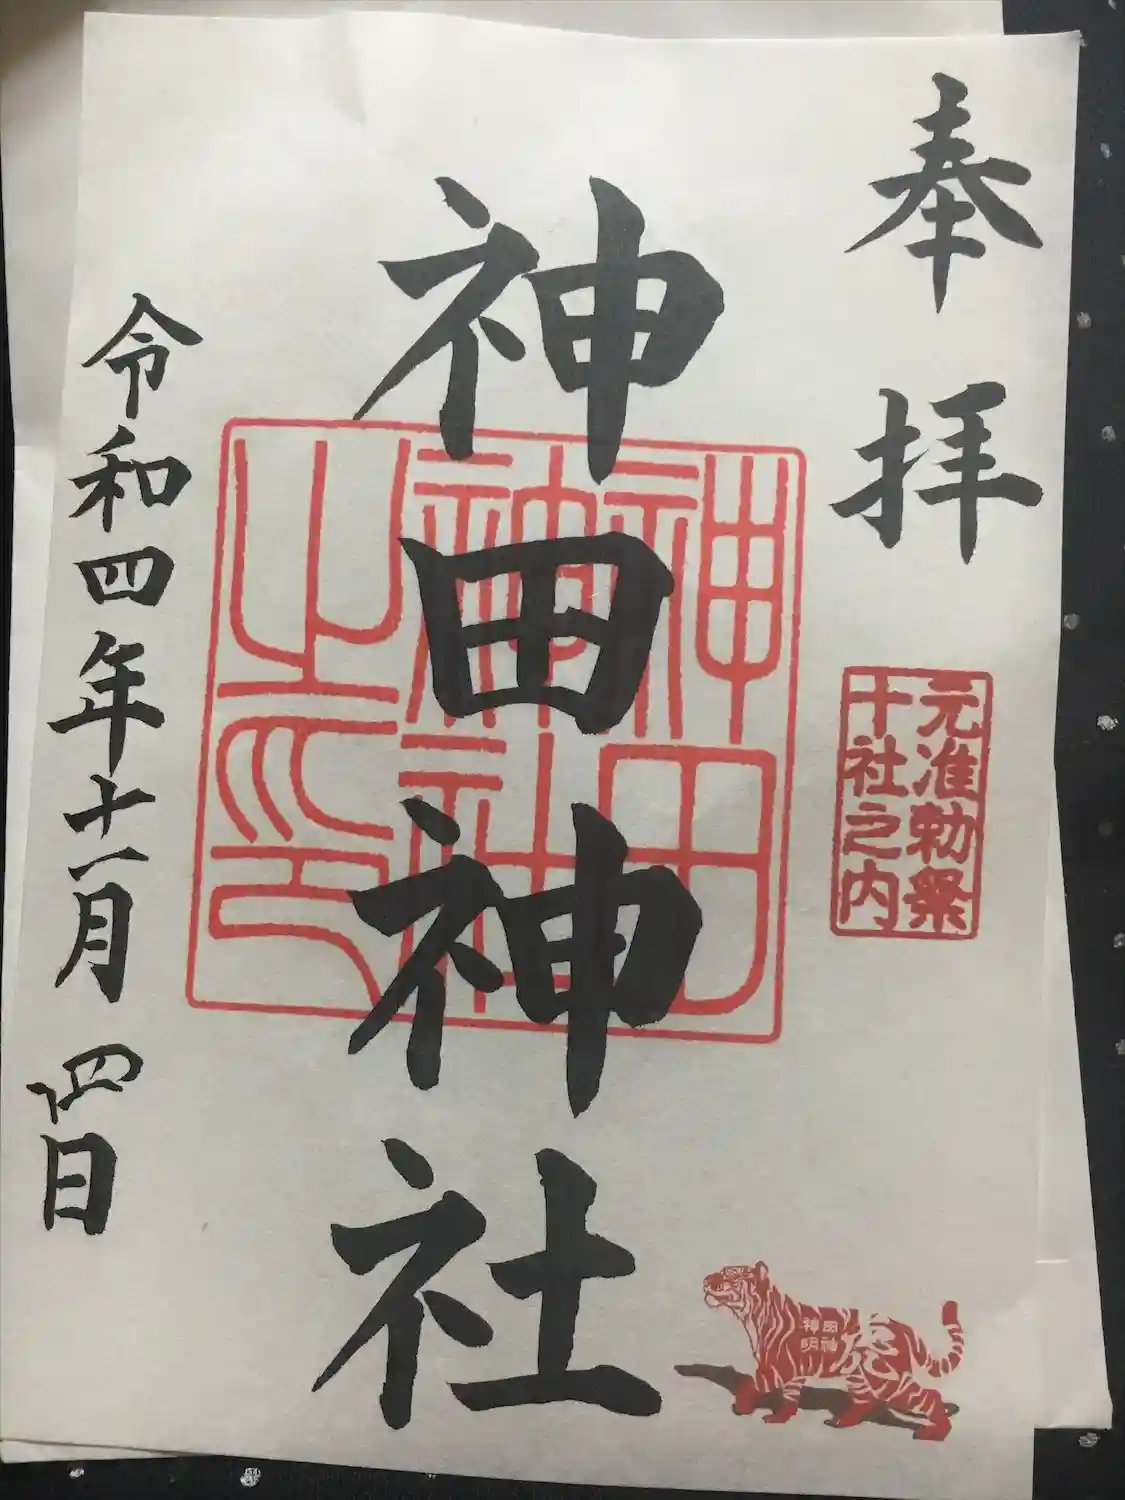 奉拝
元准勅祭
十社之内
神田神社
神田
神社
之印
令和四年十一月四日
神田
明神
虎